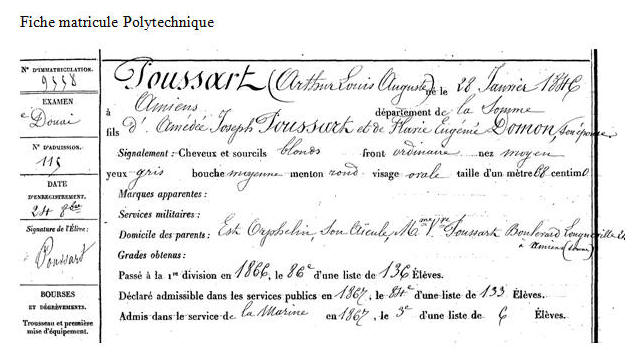 Fiche matricule Polytechnique
N° D'IMMATRICULATION.
9558
EXAMEN
e Douai
N° D'ADMISSION.
115
DATE
D'ENREGISTREMENT.
24 8bre
Signature de l'Élève:
Poussart
BOURSES
ET DÉGRÈVEMENTS.
Trousseau et première
mise d'équipement.
Poussart (Arthur Louis Auguste) né le 28 Janvier 1846
à Amiens département de la Somme
fils d'Amédée Joseph Poussart et de Flavie Eugénie Domon, son épouse
Signalement: Cheveux et sourcils blonds front ordinaire nez moyen
yeux gris bouche moyenne menton rond visage ovale taille d'un mètre 68 centim
Marques apparentes:
Services militaires:
Domicile des parents: Est Orphelin, Son Aïeule, Mme Vve Poussart Boulevard Longueville
à Amiens (Somme)
Grades obtenus:
Passé à la 1re division en 1866, le 86e d'une liste de 136 Élèves.
Déclaré admissible dans les services publics en 1867, le 84e d'une liste de 133 Élèves.
Admis dans le service de la Marine en 1867, le 3e d'une liste de 6 Élèves.